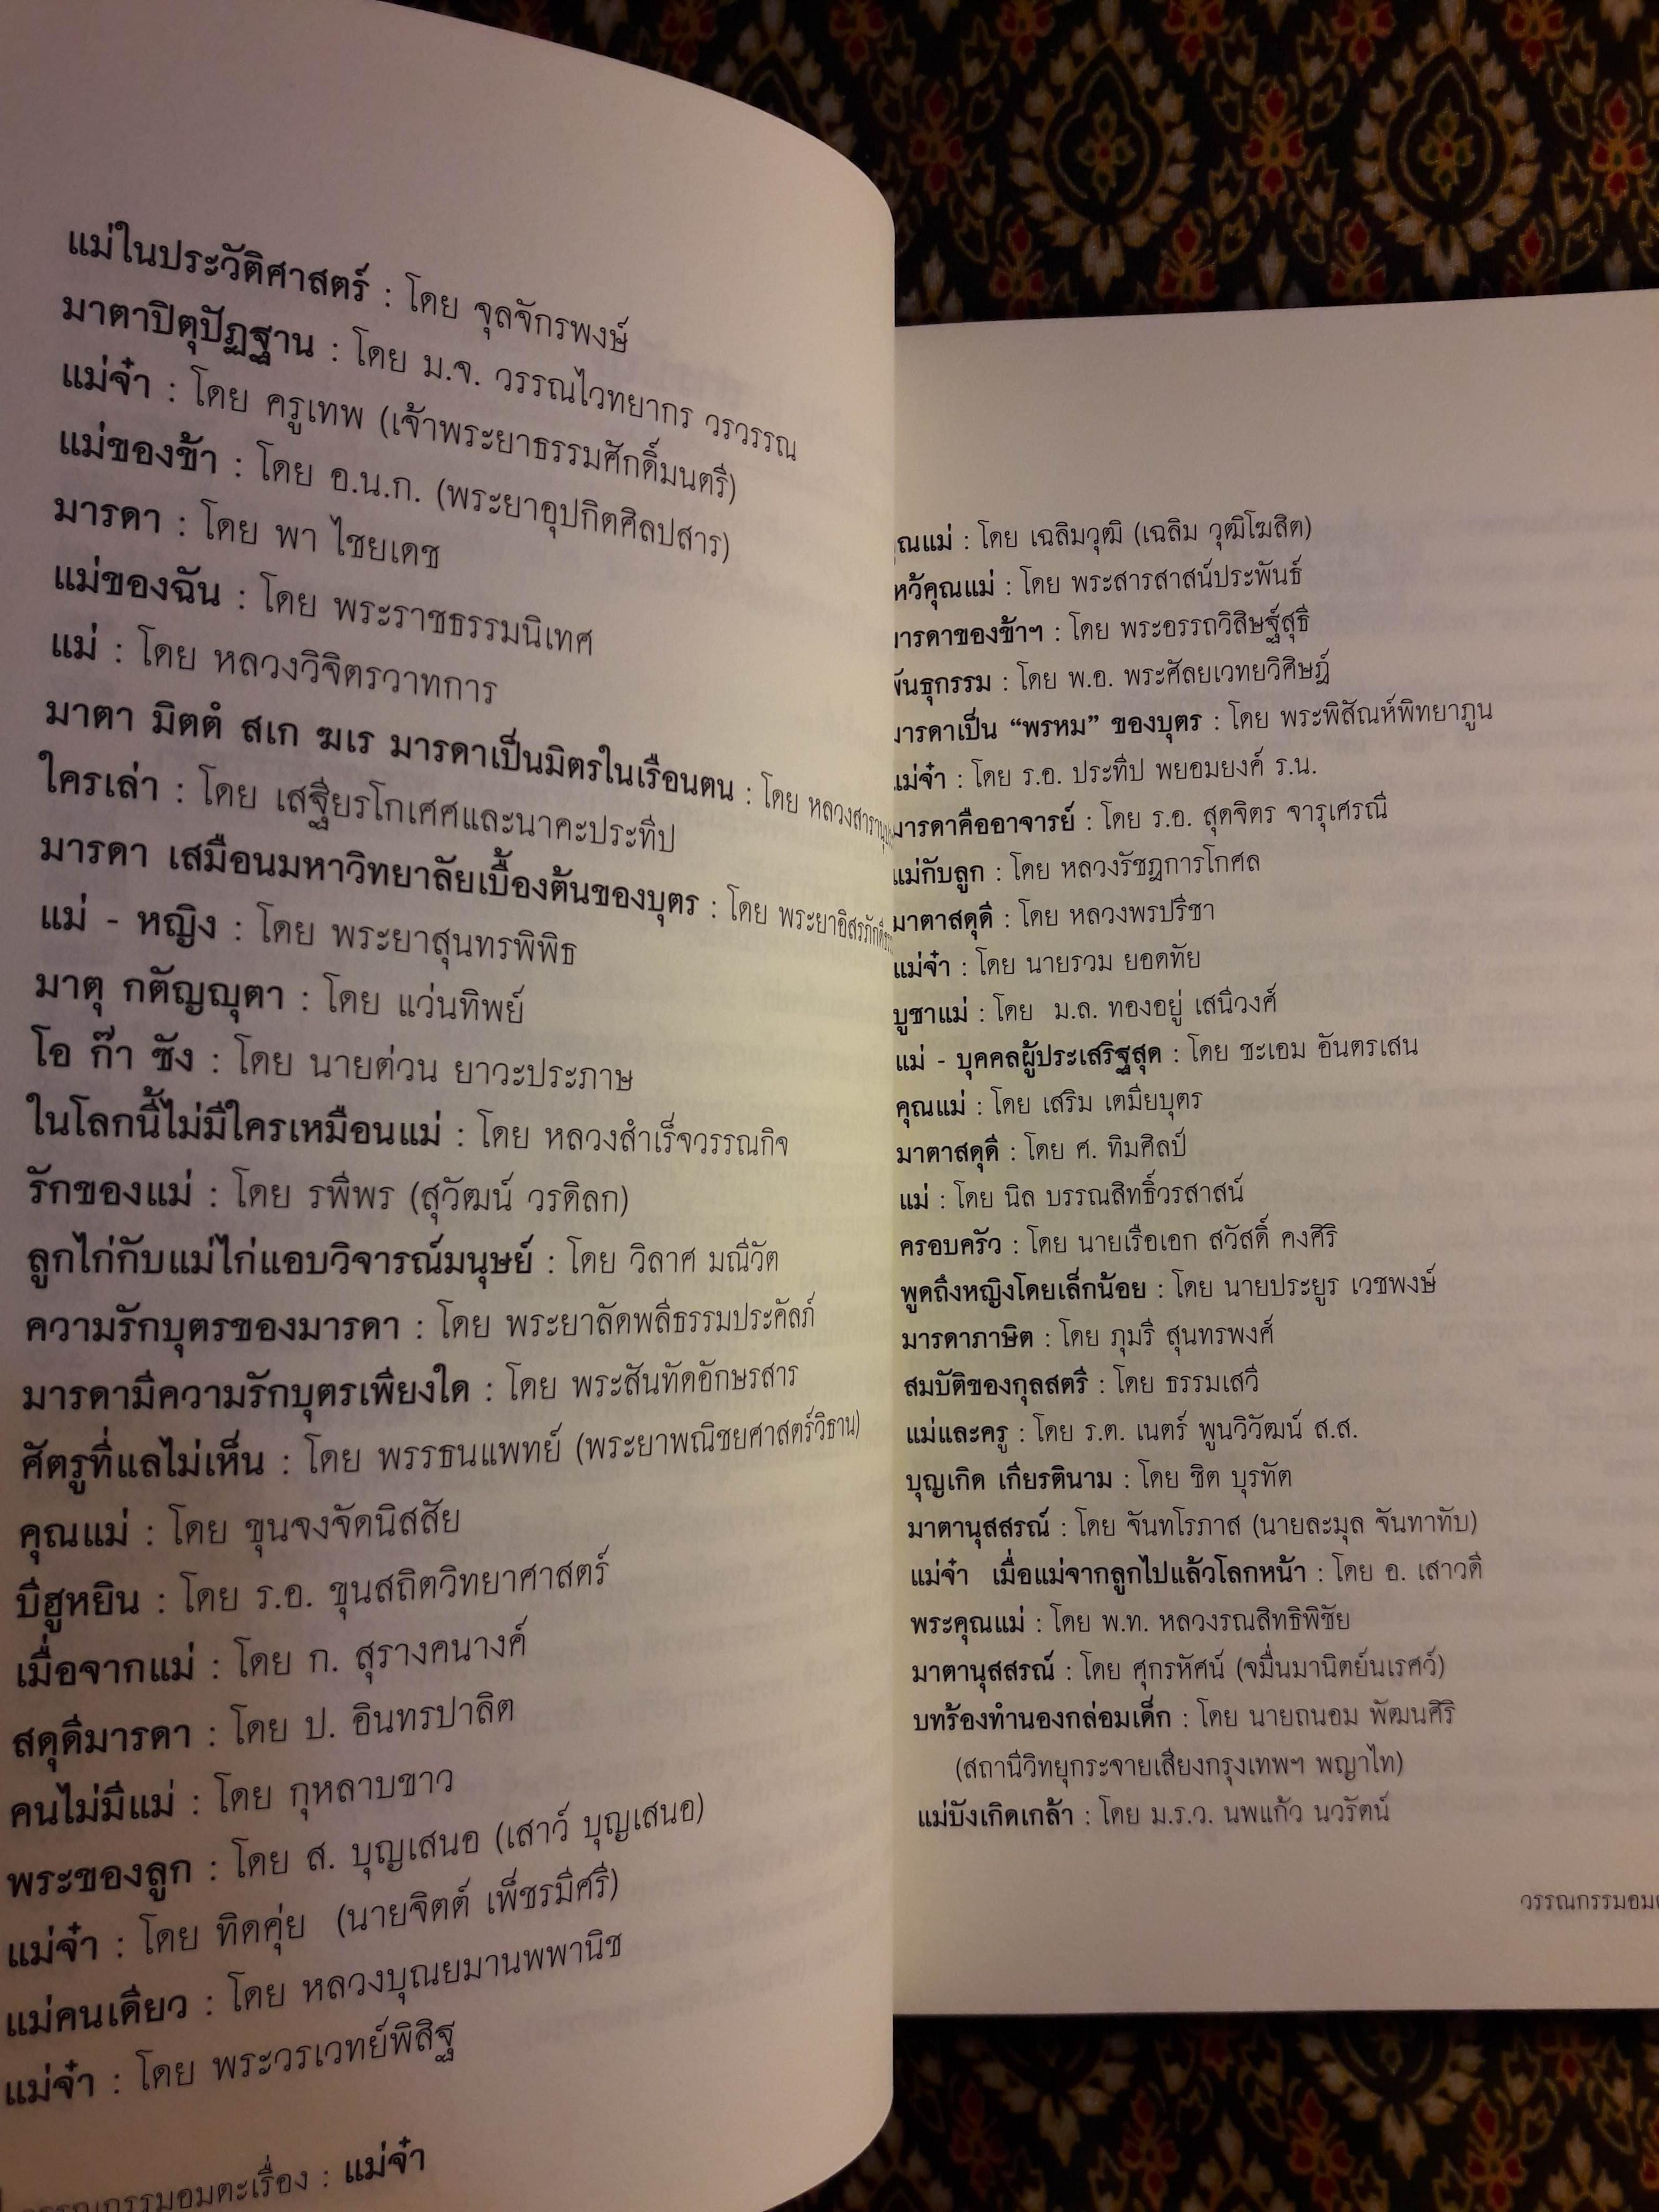 แม่ในประวัติศาสตร์ : โดย จุลจักรพงษ์
มาตาปิตุปัฏฐาน : โดย ม.จ. วรรณไวทยากร วรวรรณ
แม่จ๋า : โดย ครูเทพ (เจ้าพระยาธรรมศักดิ์มนตรี)
แม่ของข้า : โดย อ.น.ก. (พระยาอุปกิตศิลปสาร)
มารดา : โดย พา ไชยเดช
แม่ของฉัน : โดย พระราชธรรมนิเทศ
แม่ : โดย หลวงวิจิตรวาทการ
มาตา มิตตํ สเก ฆเร มารดาเป็นมิตรในเรือนตน : โดย
ใครเล่า : โดย เสฐียรโกเศศและนาคะประทีป
มารดา เสมือนมหาวิทยาลัยเบื้องต้นของบุตร : โดย
แม่ - หญิง : โดย พระยาสุนทรพิพิธ
มาตุ กตัญญุตา : โดย แว่นทิพย์
โอ ก๊า ซัง : โดย นายต่วน ยาวะประภาษ
ในโลกนี้ไม่มีใครเหมือนแม่ : โดย หลวงสำเร็จวรรณกิจ
รักของแม่ : โดย รพีพร (สุวัฒน์ วรดิลก)
ลูกไก่กับแม่ไก่แอบวิจารณ์มนุษย์ : โดย วิลาศ มณีวัต
ความรักบุตรของมารดา : โดย พระยาลัดพลีธรรมประคัลภ์
มารดามีความรักบุตรเพียงใด : โดย พระสันทัดอักษรสาร
ศัตรูที่แลไม่เห็น : โดย พรรธนแพทย์ (พระยาพณิชยศาสตร์วิธาน)
คุณแม่ : โดย ขุนจงจัดนิสสัย
บีฮูหยิน : โดย ร.อ. ขุนสถิตวิทยาศาสตร์
เมื่อจากแม่ : โดย ก. สุรางคนางค์
สดุดีมารดา : โดย ป. อินทรปาลิต
คนไม่มีแม่ : โดย กุหลาบขาว
พระของลูก : โดย ส. บุญเสนอ (เสาว์ บุญเสนอ)
แม่จ๋า : โดย ทิดคุ่ย (นายจิตต์ เพ็ชรมีศรี)
แม่คนเดียว : โดย หลวงบุณยมานพพานิช
แม่จ๋า : โดย พระวรเวทย์พิสิฐ
วรรณกรรมอมตะเรื่อง : แม่จ๋า
ณแม่ : โดย เฉลิมวุฒิ (เฉลิม วุฒิโฆสิต)
หว้คุณแม่ : โดย พระสารสาสน์ประพันธ์
ารดาของข้าฯ : โดย พระอรรถวิสิษฐ์สุธี
ันธุกรรม : โดย พ.อ. พระศัลยเวทยวิศิษฎ์
มารดาเป็น “พรหม” ของบุตร : โดย พระพิสัณห์พิทยาภูน
แม่จ๋า : โดย ร.อ. ประทีป พยอมยงค์ ร.น.
มารดาคืออาจารย์ : โดย ร.อ. สุดจิตร จารุเศรณี
แม่กับลูก : โดย หลวงรัชฎการโกศล
มาตาสดุดี : โดย หลวงพรปรีชา
แม่จ๋า : โดย นายรวม ยอดทัย
บูชาแม่ : โดย ม.ล. ทองอยู่ เสนีวงศ์
แม่ - บุคคลผู้ประเสริฐสุด : โดย ชะเอม อันตรเสน
คุณแม่ : โดย เสริม เตมียบุตร
มาตาสดุดี : โดย ศ. ทิมศิลป์
แม่ : โดย นิล บรรณสิทธิ์วรสาสน์
ครอบครัว : โดย นายเรือเอก สวัสดิ์ คงศิริ
พูดถึงหญิงโดยเล็กน้อย : โดย นายประยูร เวชพงษ์
มารดาภาษิต : โดย ภุมรี สุนทรพงศ์
สมบัติของกุลสตรี : โดย ธรรมเสวี
แม่และครู : โดย ร.ต. เนตร์ พูนวิวัฒน์ ส.ส.
บุญเกิด เกียรตินาม : โดย ชิต บุรทัต
มาตานุสสรณ์ : โดย จันทโรภาส (นายละมุล จันทาทับ)
แม่จ๋า เมื่อแม่จากลูกไปแล้วโลกหน้า : โดย อ. เสาวดี
พระคุณแม่ : โดย พ.ท. หลวงรณสิทธิพิชัย
มาตานุสสรณ์ : โดย ศุกรหัศน์ (จมื่นมานิตย์นเรศว์)
บทร้องทำนองกล่อมเด็ก : โดย นายถนอม พัฒนศิริ
(สถานีวิทยุกระจายเสียงกรุงเทพฯ พญาไท)
แม่บังเกิดเกล้า : โดย ม.ร.ว. นพแก้ว นวรัตน์
วรรณกรรมอม